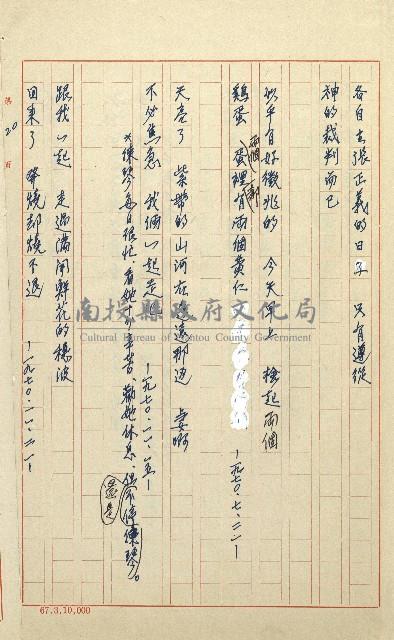 各自主張正義的日子 只有遵從
神的裁判而已
似乎有好徵兆的 今天早上 撿起兩個
雞蛋 兩個都
蛋裡有兩個黃仁
—一九七〇.七.二一—
天亮了 紫色的山河在遙遠那边 妻啊
不必焦急 我倆一起走吧
—一九七〇.一一.五—
*練琴每日很忙、看她十分辛苦、勸她休息、但
還是
練琴。
跟我一起 走過滿開鮮花的楊波
回來了 發燒却燒不退
—一九七〇.一一.二一—
第 20 頁
南投縣政府文化局
Cultural Bureau of Nantou County Government
67.3.10,000